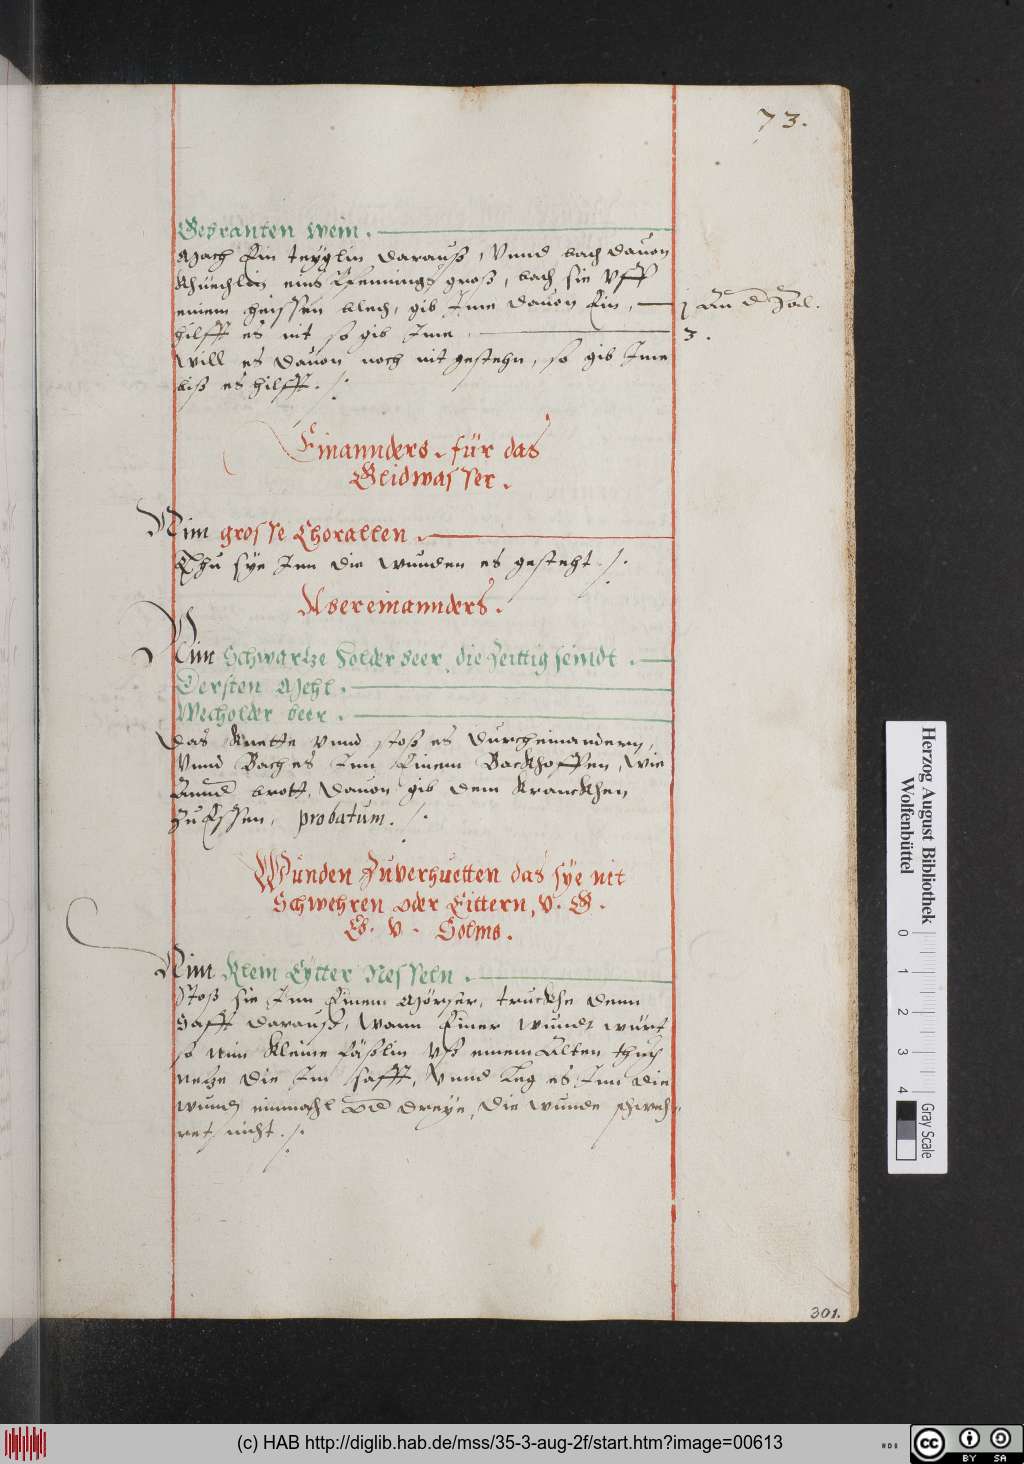 73.
Gebranten wein.
Mach Ein teyglin darauß, Vnnd bach dauon
Khüechlin eins Pfennings groß, bach sie vff
einem heissen blech, gib Ime dauon Ein,
j
hilfft es nit so gib Ime
3.
Will es dauon noch nit gestehn, so gib Ime
biß es hilfft.
Einannders für das
Glidwasser.
Nim grosse Chorallen.
Thu sye Inn die wunden es gesteht.
Abereinannders.
Nim Schwartze holder beer, die Zeittig seindt.
Gersten Mehl.
Wecholder beer.
Das Knette Vnnd stoß es durcheinandern,
Vnnd Bach es Inn Einem Backhoffen, wie
brott, dauon gib dem Kranckhen
Zu Essen, probatum.
Wunden Zuverhuetten das sye nit
Schwehren oder Eittern, V. G.
G. V. Solms.
Nim Klein Eytter Nesseln.
Stoß sie Inn Einem Mörser, truckhe denn
Safft darauß, Wann Einer wundt würt
so nim Kleine fäßlin vß einem Alten thuch
netze die Im safft, Vnnd leg es Inn die
wunden einmahl od dreye, die wunde schweh-
ret nicht.
301.
Herzog August Bibliothek
Wolfenbüttel
0 1 2 3 4
Gray Scale
(c) HAB http://diglib.hab.de/mss/35-3-aug-2f/start.htm?image=00613
cc BY SA